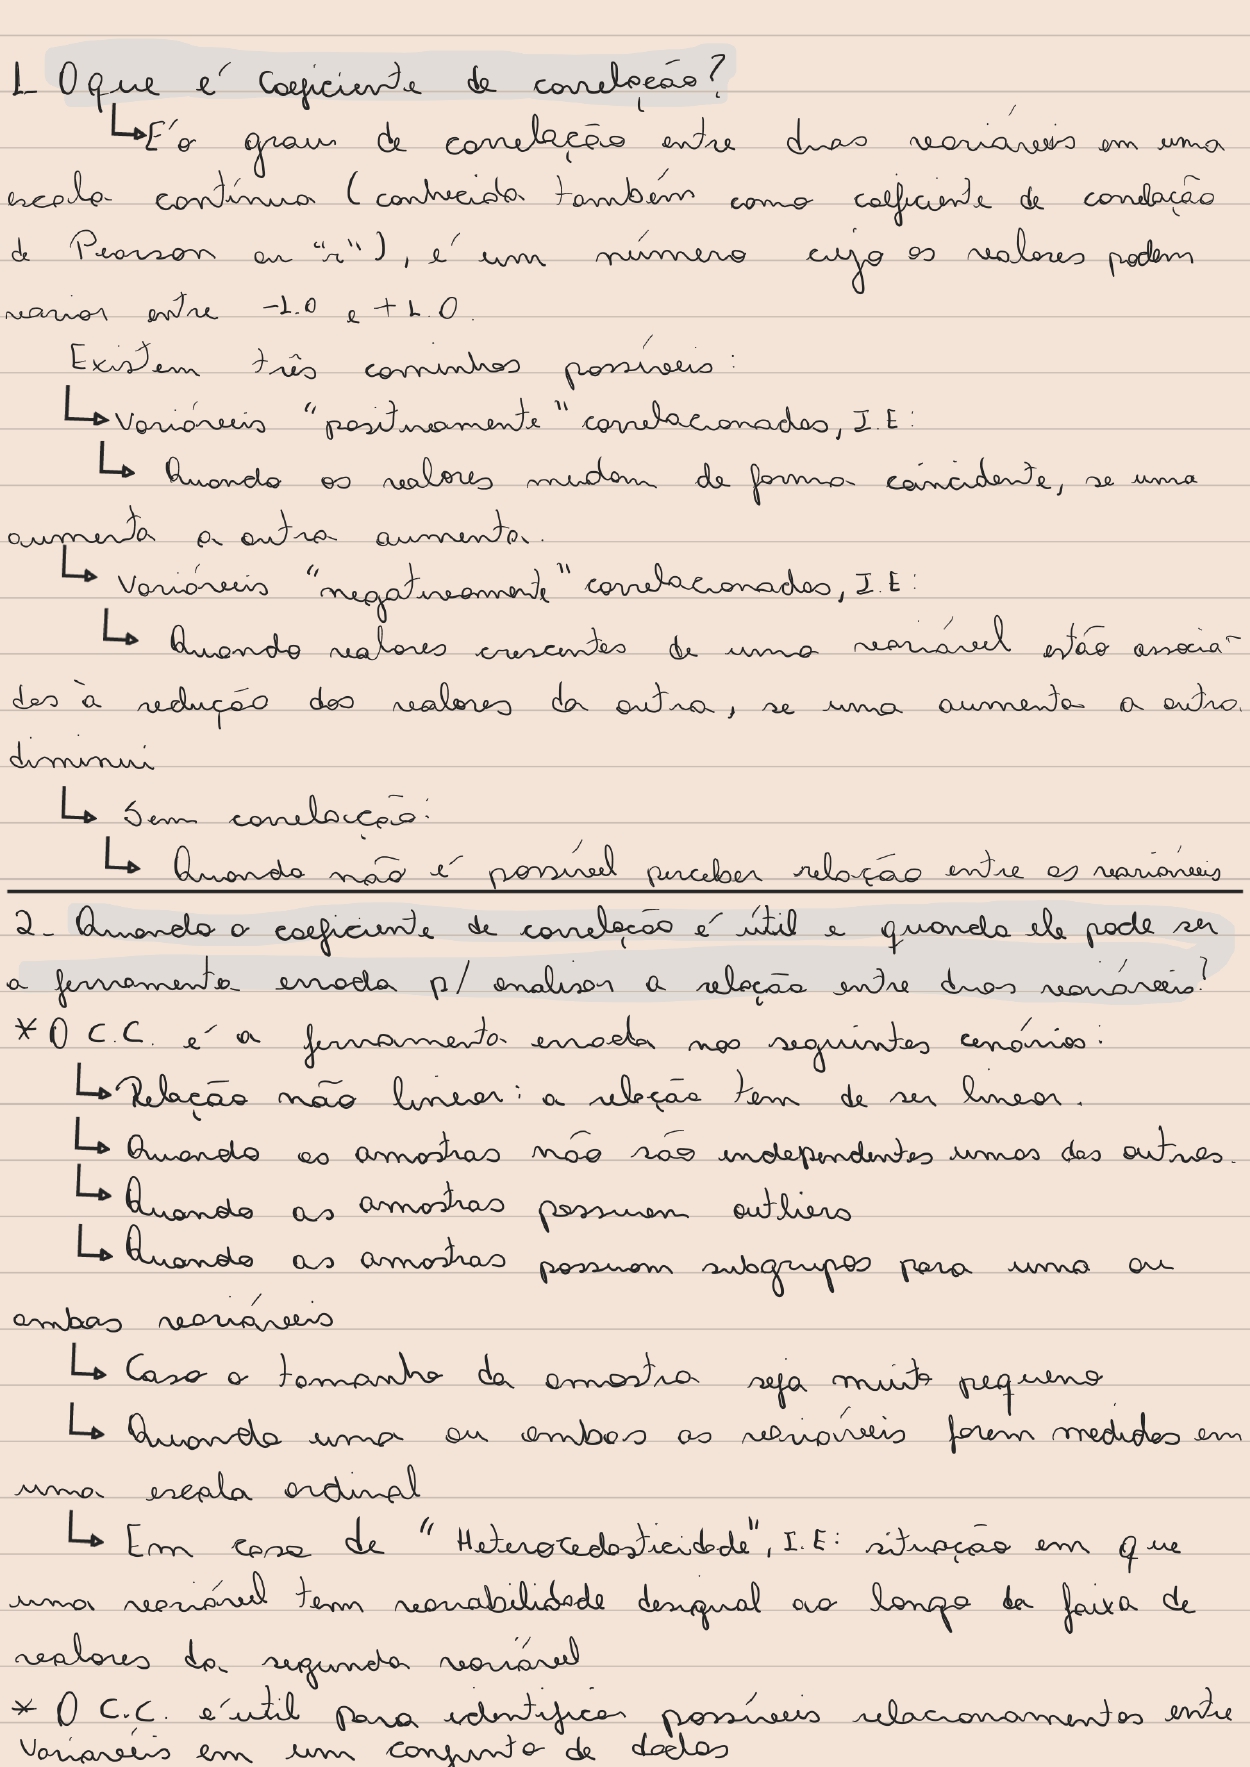 1 O que é coeficiente de correlação?
↳ É o grau de correlação entre duas variáveis em uma
escala contínua (conhecida também como coeficiente de correlação
de Pearson ou "r"), é um número cujo os valores podem
variar entre -1.0 e +1.0.
Existem três caminhos possíveis:
↳ Variáveis "positivamente" correlacionadas, I.E:
↳ Quando os valores mudam de forma coincidente, se uma
aumenta a outra aumenta.
↳ Variáveis "negativamente" correlacionadas, I.E:
↳ Quando valores crescentes de uma variável estão associa-
das à redução dos valores da outra, se uma aumenta a outra
diminui
↳ Sem correlação:
↳ Quando não é possível perceber relação entre as variáveis
2- Quando o coeficiente de correlação é útil e quando ele pode ser
a ferramenta errada p/ analisar a relação entre duas variáveis?
* O C.C. é a ferramenta errada nos seguintes cenários:
↳ Relação não linear: a relação tem de ser linear.
↳ Quando as amostras não são independentes umas das outras.
↳ Quando as amostras possuem outliers
↳ Quando as amostras possuam subgrupos para uma ou
ambas variáveis
↳ Caso o tamanho da amostra seja muito pequeno
↳ Quando uma ou ambas as variáveis forem medidas em
uma escala ordinal
↳ Em caso de "Heterocedasticidade", I.E: situação em que
uma variável tem variabilidade desigual ao longo da faixa de
valores da segunda variável
* O C.C. é útil para identificar possíveis relacionamentos entre
Variáveis em um conjunto de dados